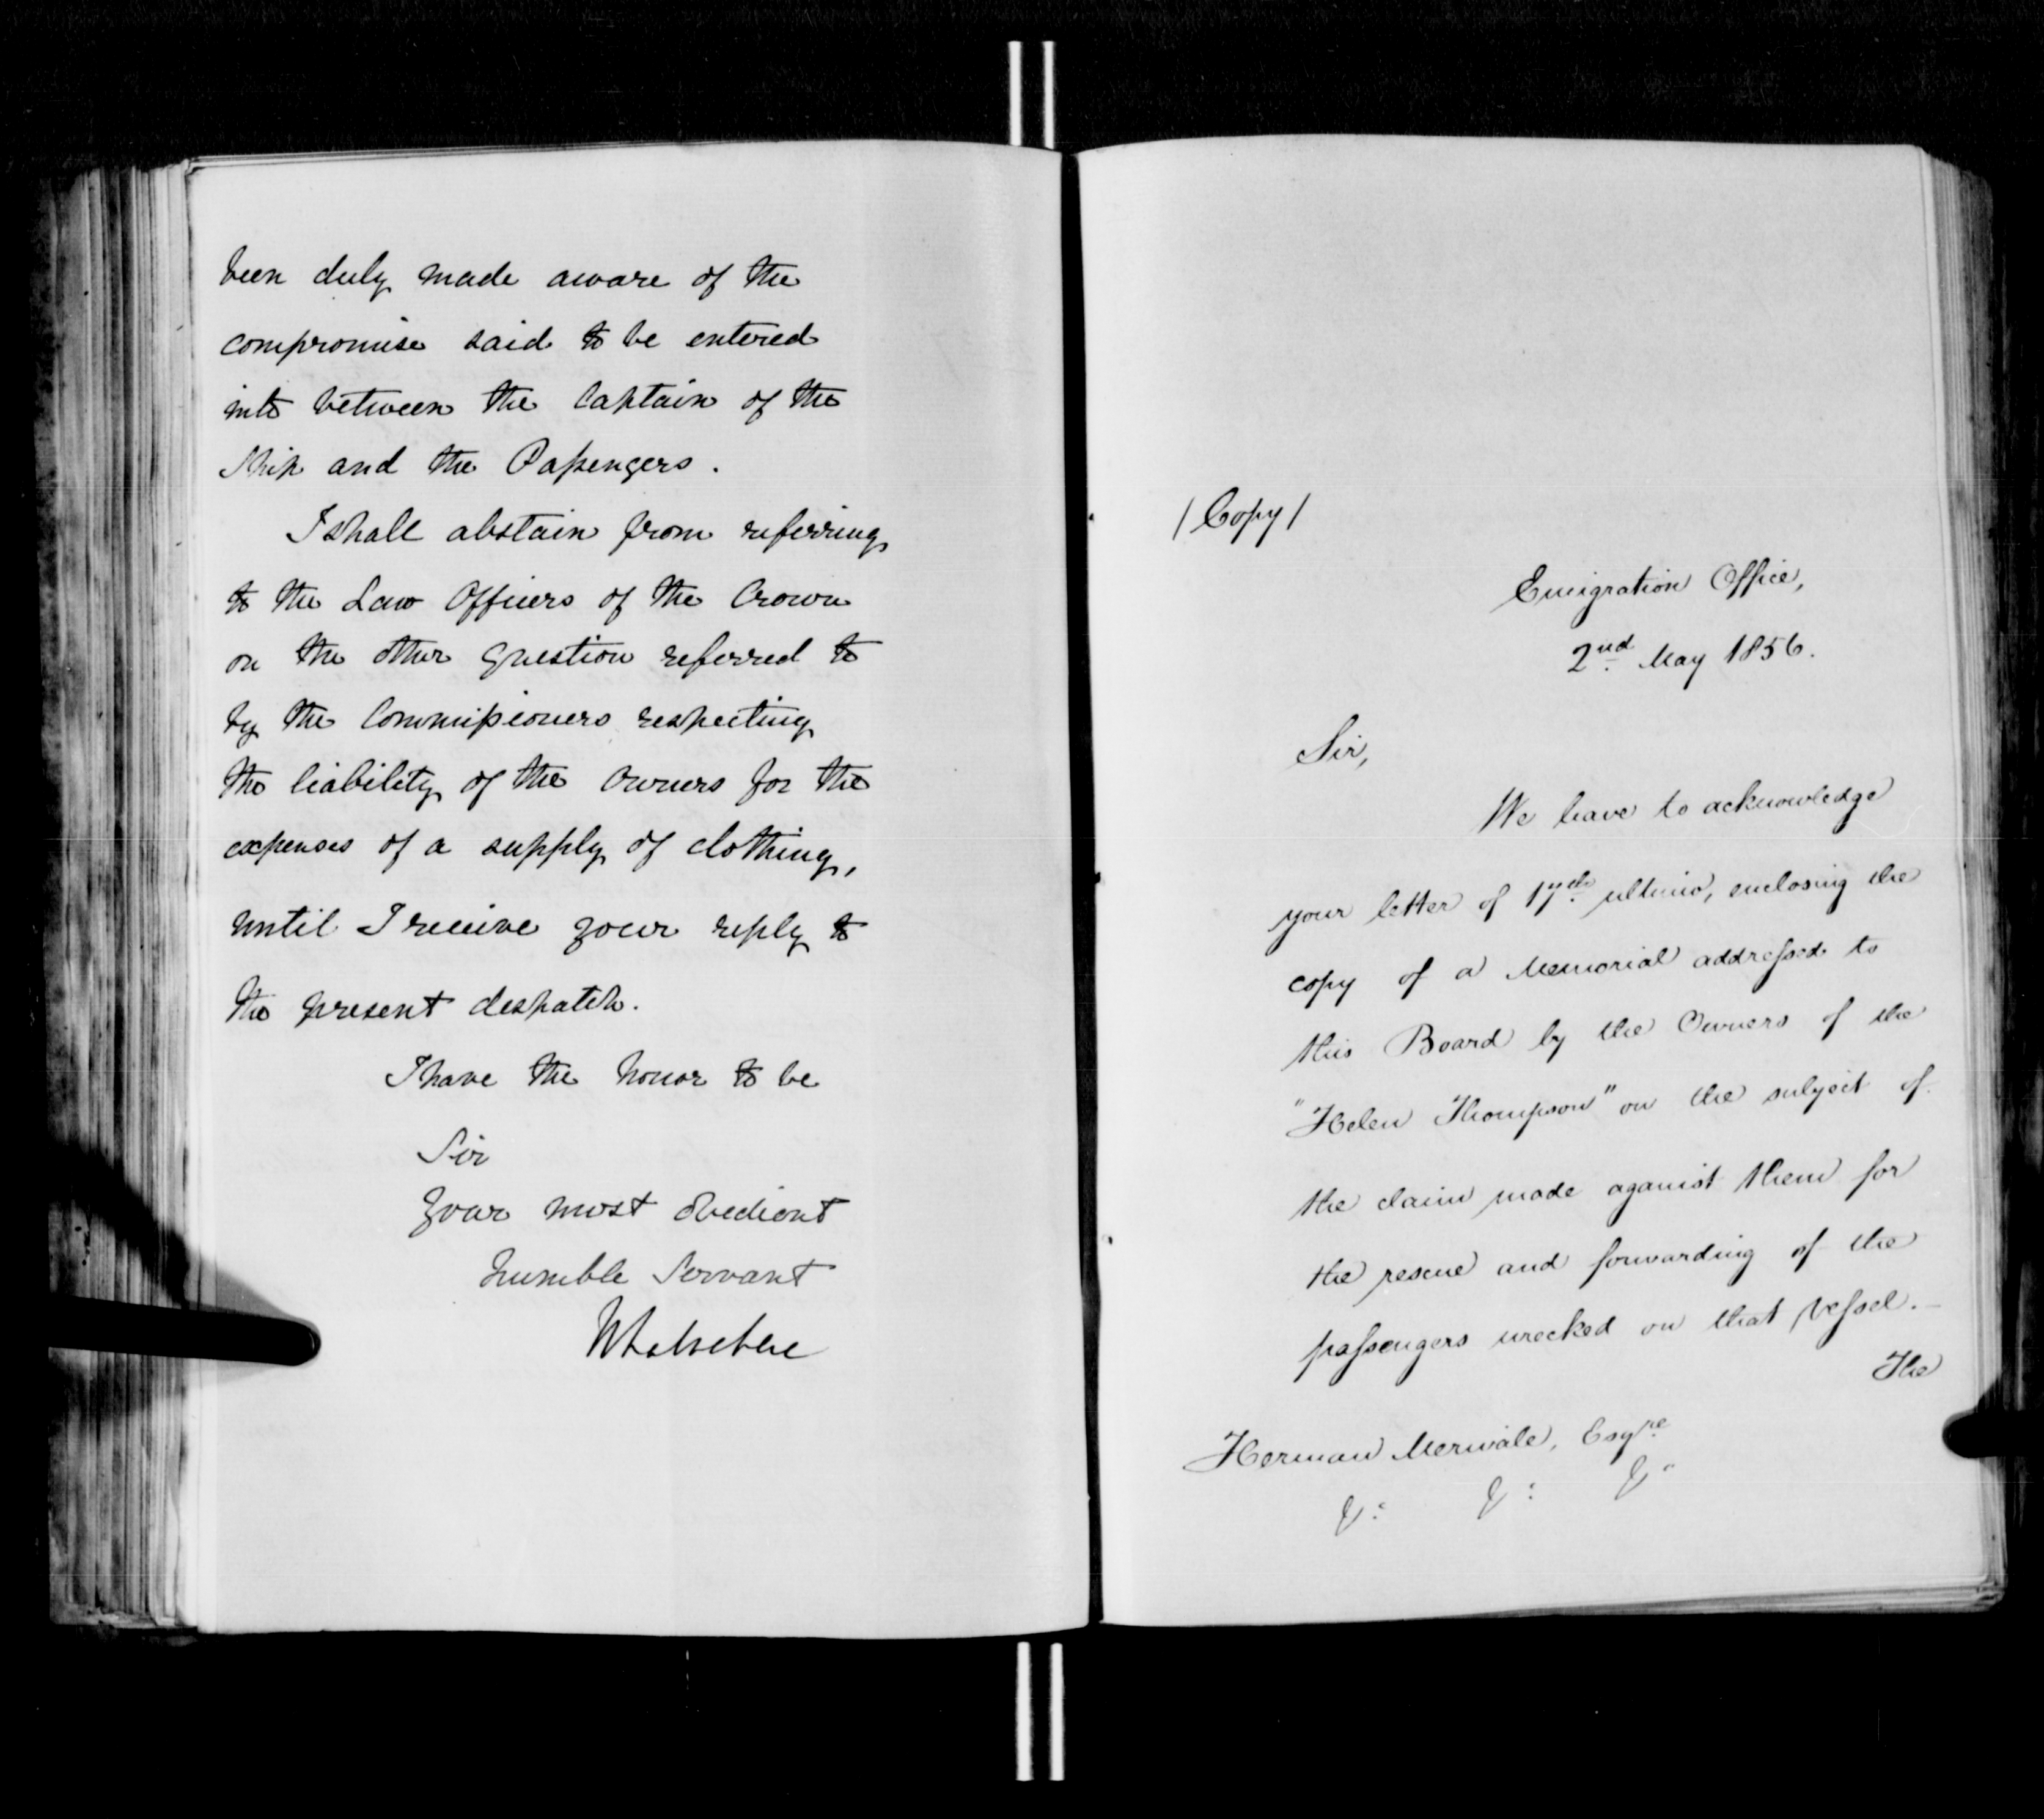 been duly made aware of the
compromise said to be entered
into between the Captain of the
Ship and the Passengers.
I shall abstain from referring
to the Law Officers of the Crown
on the other question referred to
by the Commissioners respecting
the liability of the Owners for the
expenses of a supply of clothing,
until I receive your reply to
the present despatch.
I have the honor to be
Sir
Your most obedient
humble Servant
/Copy/
Emigration Office,
2nd May 1856.
Sir,
We have to acknowledge
your letter of 17th ultimo, enclosing the
copy of a Memorial addressed to
this Board by the Owners of the
"Helen Thompson" on the subject of
the claim made against them for
the rescue and forwarding of the
passengers wrecked on that vessel.—
The
Herman Merivale, Esqre
&c &c &c